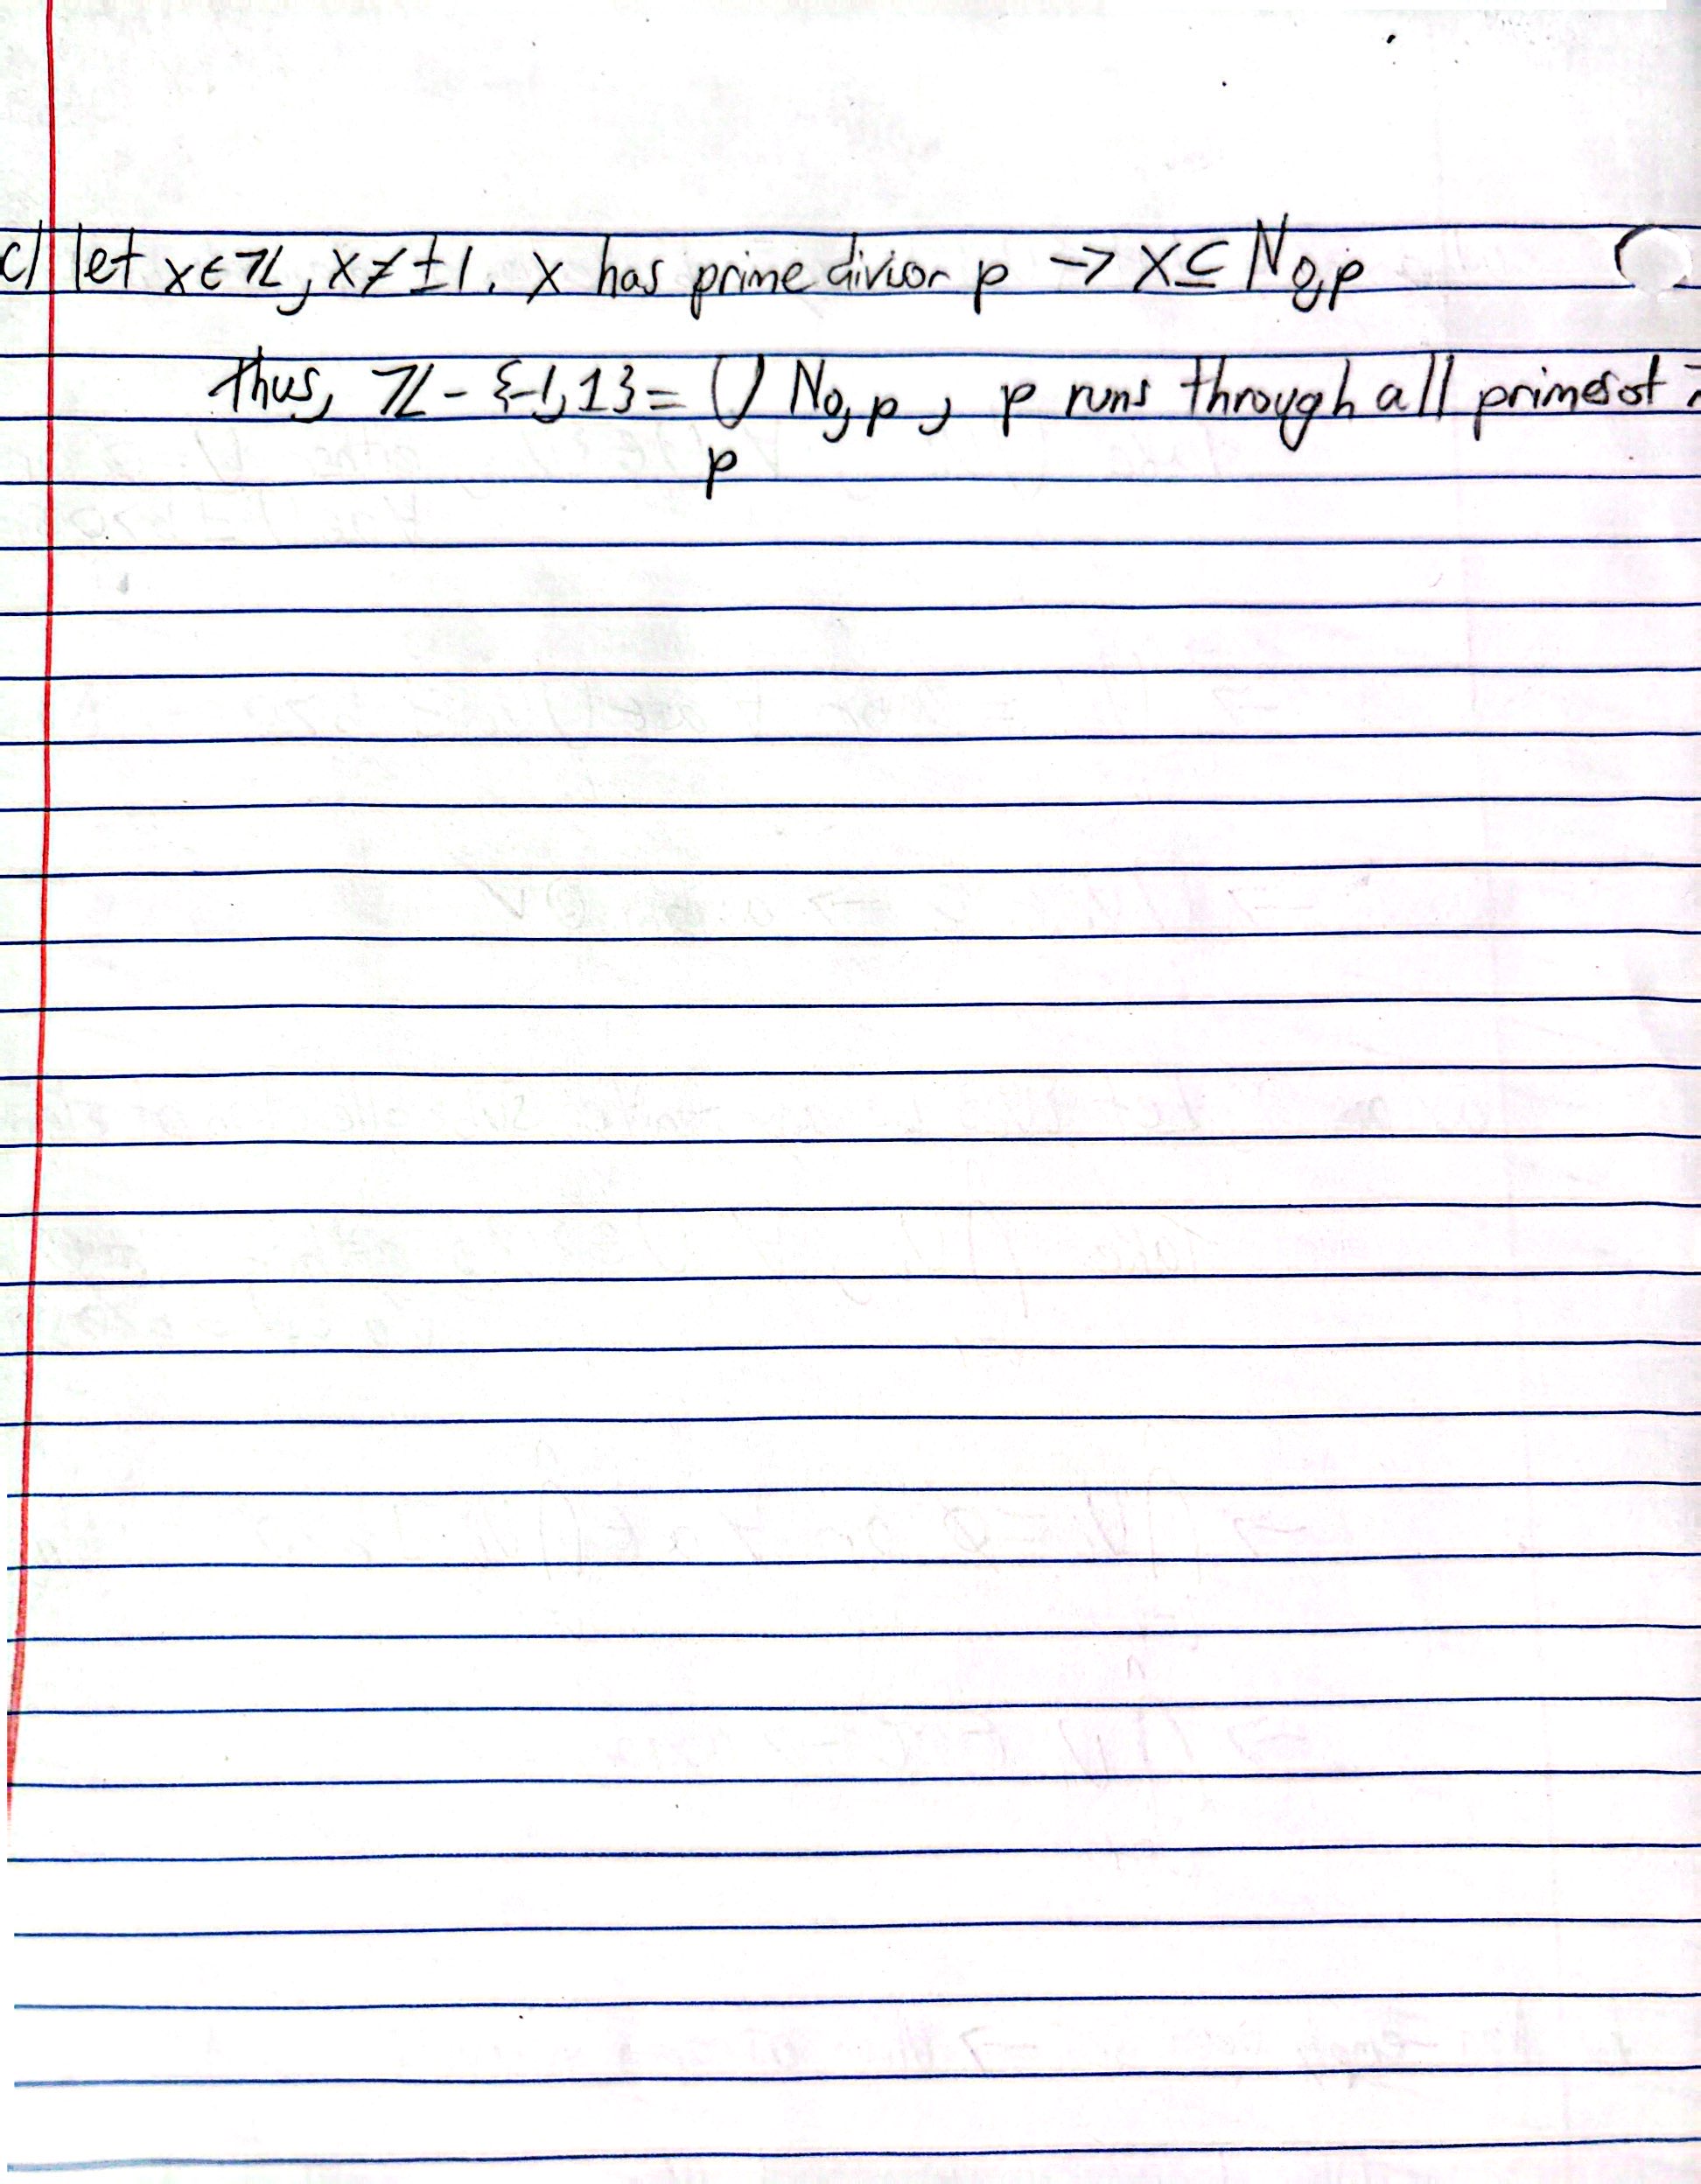 c) let x∈ℤ, x≠±1. x has prime divisor p → x⊆ N₀,p
thus, ℤ - {-1,1} = ⋃ N₀,p , p runs through all primes of
p